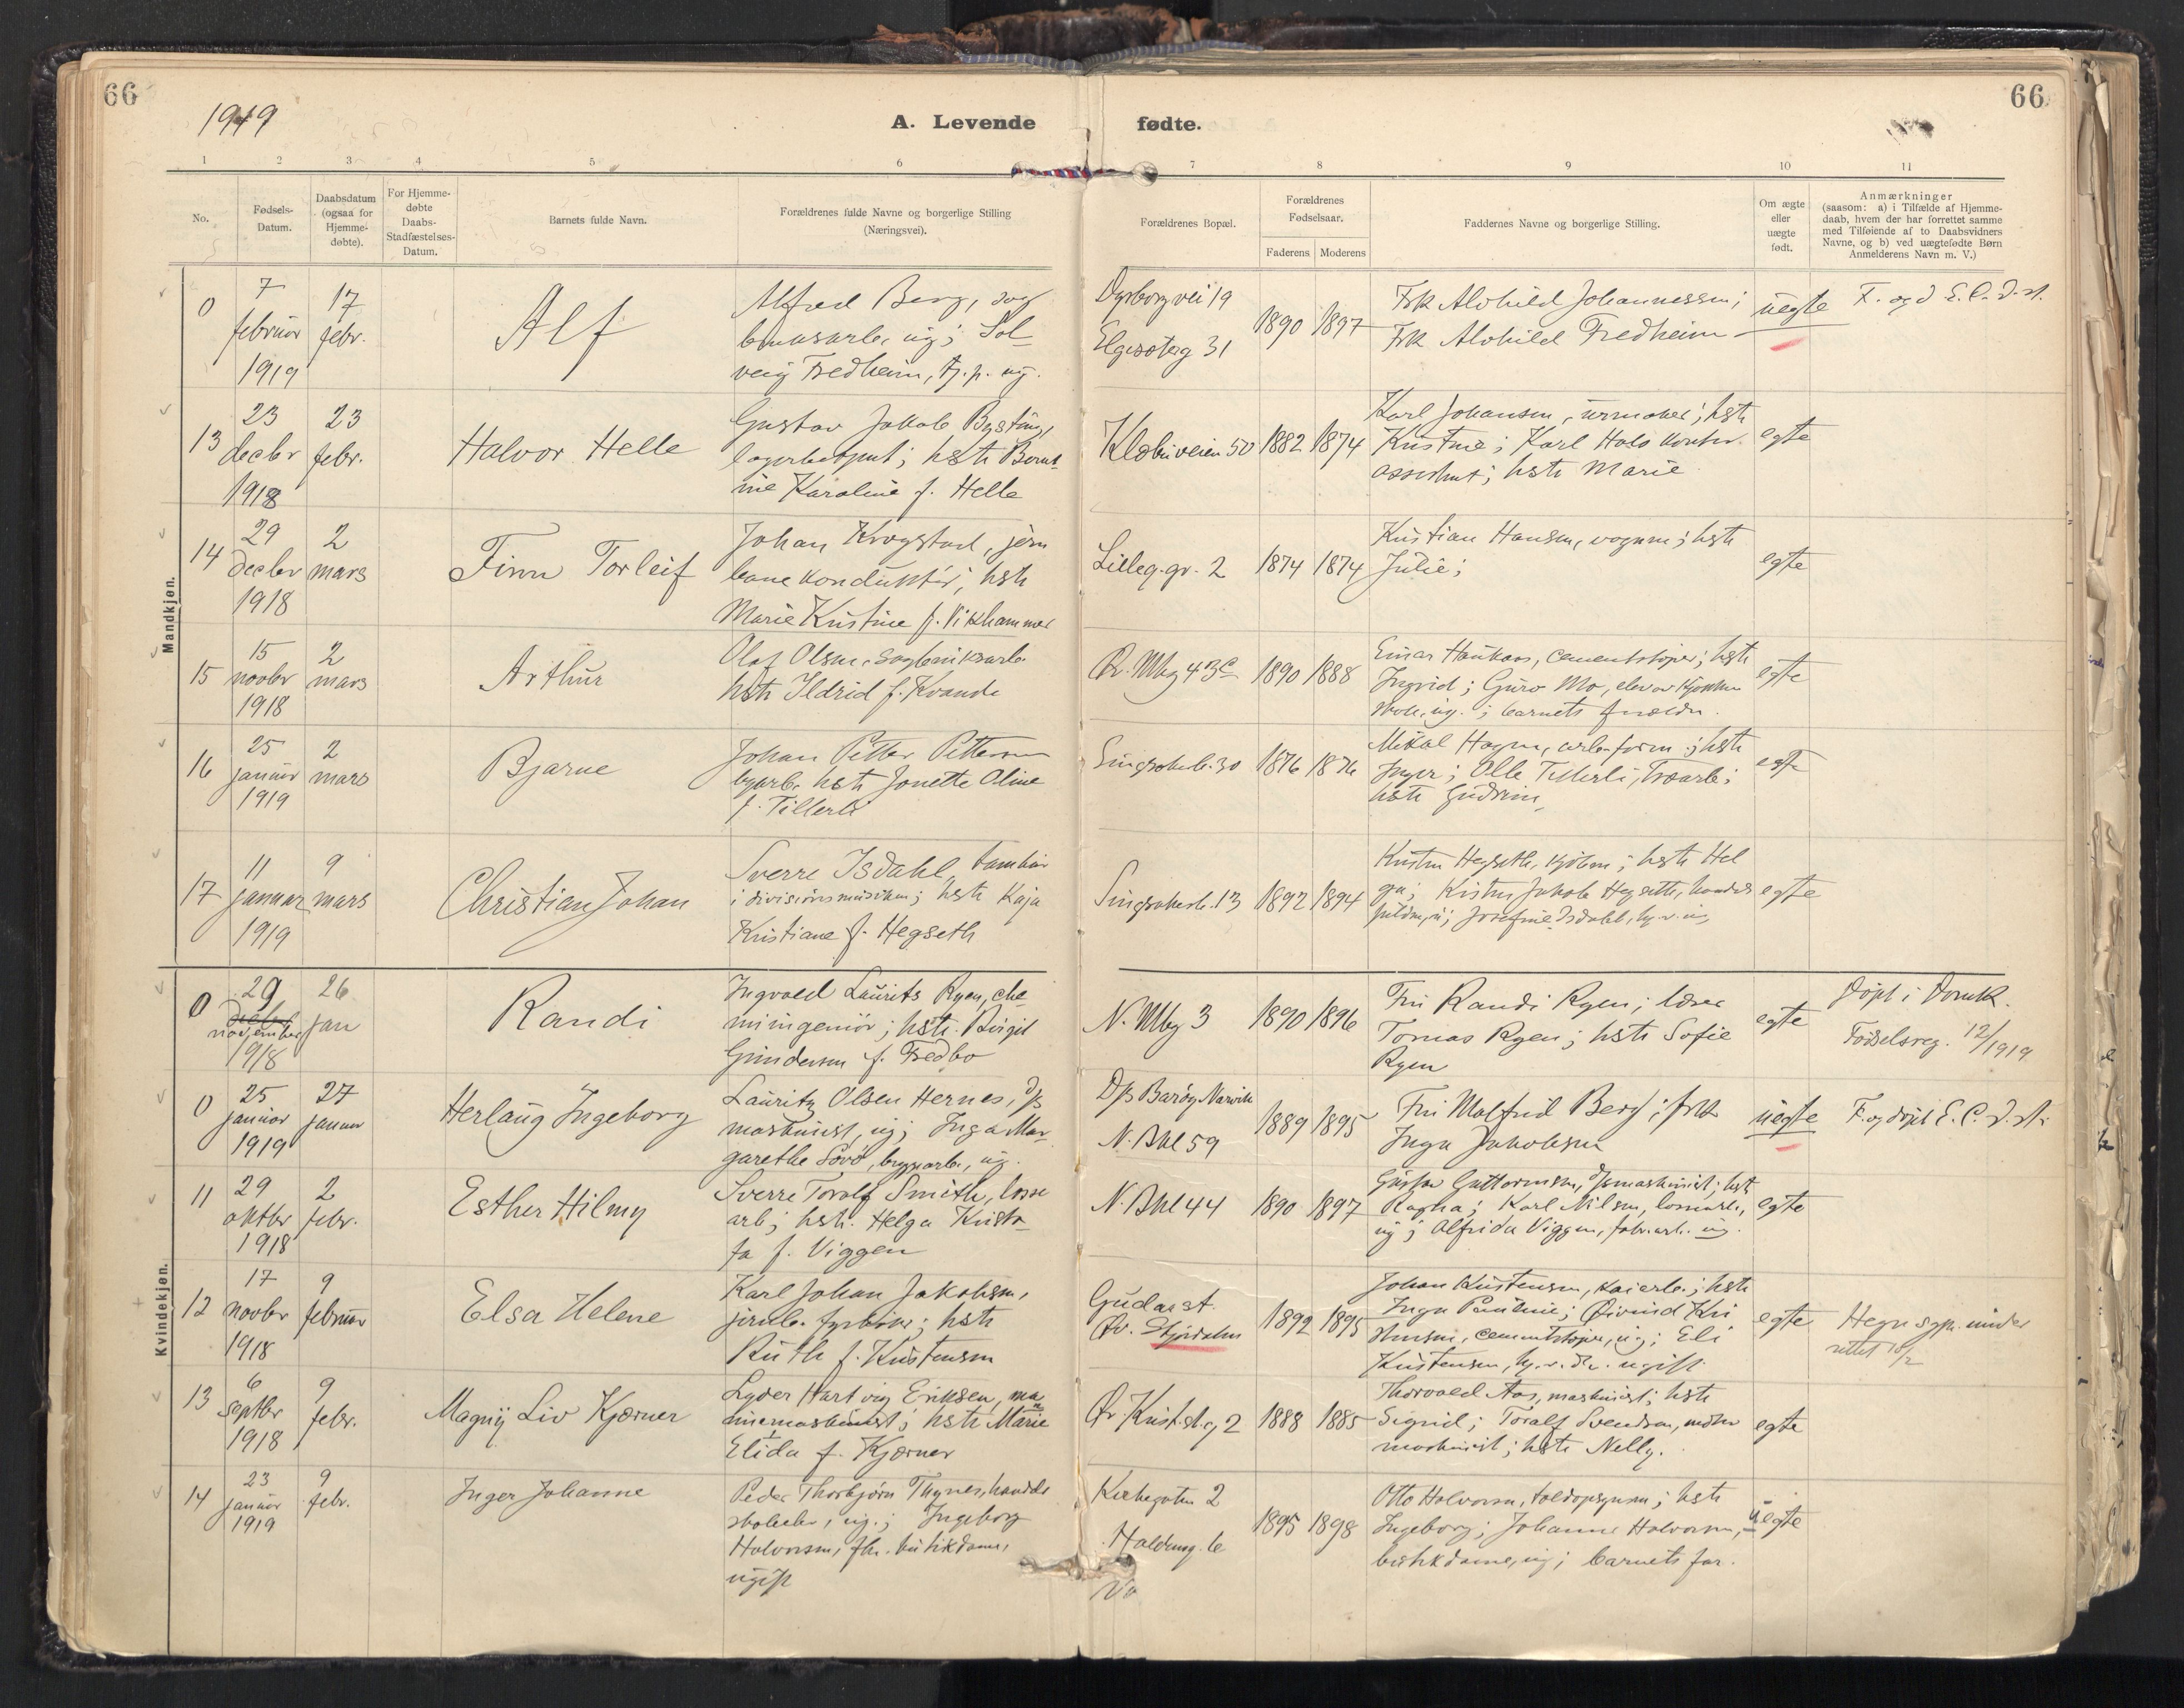 66
66
1919
A. Levende fødte.
1 2 3 4 5 6 7 8 9 10 11
No.
Fødsels-
Datum.
Daabsdatum
(ogsaa for
Hjemme-
døbte).
For Hjemme-
døbte
Daabs-
Stadfæstelses-
Datum.
Barnets fulde Navn.
Forældrenes fulde Navne og borgerlige Stilling
(Næringsvei).
Forældrenes Bopæl.
Forældrenes
Fødselsaar.
Faderens Moderens
Faddernes Navne og borgerlige Stilling.
Om ægte
eller
uægte
født.
Anmærkninger
(saasom: a) i Tilfælde af Hjemme-
daab, hvem der har forrettet samme
med Tilføiende af to Daabsvidners
Navne, og b) ved uægtefødte Børn
Anmelderens Navn m. V.)
Mandkjøn.
0
7
februar
1919
17
febr.
Alf
Alfred Berg, sag
bruksarb. ug; Sol-
veig Fredheim, tj.p. ug.
Elgesæterg 31
1890 1897
Frk Alvhild Johannessen;
Frk Alvhild Fredheim
uegte
13
23
decbr
1918
23
febr.
Halvor Helle
Gustav Jakob
hstr Bernt-
ine Karoline f. Helle
Klæbuveien 50
1882 1874
Karl Johansen, urmaker; hstr
Kristine; Karl Hals kontor
assistent; hstr Marie
egte
14
29
decbr
1918
2
mars
Finn Torleif
Johan Krogstad, jern
banekonduktør; hstr
Marie Kristine f. Vikhammer
Lilleg.gr. 2
1874 1874
Kristian Hansen, vognm; hstr
Julie;
egte
15
15
novbr
1918
2
mars
Arthur
Olaf Olsen, sagbruksarb.
hstr Ildrid f. Kvande
1890 1888
Einar Haukaas, cementstøper; hstr
Ingrid; Guro Mo,
ug.; barnets forældre.
egte
16
25
januar
1919
2
mars
Bjarne
Johan Petter Pettersen
byarb. hstr Jonette Oline
f. Tillerli
Singsakerb. 30
1876 1876
Mikal Hagen, arb.form.; hstr
Inger; Olle Tillerli, træarb;
hstr Gudrun
egte
17
11
januar
1919
9
mars
Christian Johan
Sverre Isdahl, tambur
i divisionsmusiken; hstr Kaja
Kristiane f. Hegseth
Singsakerb. 13
1892 1894
Hegseth, kjøbm; hstr Hel
ga; Jakob Hegseth, handels
Josefine Isdahl,
egte
Kvindekjøn.
0
29
november
1918
26
jan
Randi
Ingvald Laurits Ryen, che-
miingeniør; hstr. Birgit
Gundersen f. Fredbo
N. Mbg 3
1890 1896
Fru Randi Ryen; lærer
Tomas Ryen; hstr Sofie
Ryen
egte
Døpt i Domk.
Fødselsreg. 12/1919
0
25
januar
1919
27
januar
Herlaug Ingeborg
Lauritz Olsen Hernes, d/s
maskinist, ug; Inga Mar-
garethe Sovø, bryggarb., ug.
D/s Barøy Narvik
N. Bkl 59
1889 1895
Fru Malfrid Berg; frk
Inga Jakobsen
uegte
11
29
oktbr
1918
2
febr.
Esther Hilmy
Sverre Toralf Smith, losse
arb; hstr. Helga Krist-
f. Viggen
N. Bkl 44
1890 1897
Gustav Guttormsen, d/smaskinist; hstr
Ragna; Karl Nilsen, lossearb.,
ug; Alfrida Viggen, fabr.arb. ug.
egte
12
17
novbr
1918
9
februar
Elsa Helene
Karl Johan Jakobsen,
jernb. fyrbøter; hstr
Ruth f. Kristensen
Gudaa st.
Øv. Stjørdalen
1892 1895
Johan Kristensen, kaiarb.; hstr
Inga Pauline; Øivind Kri
stensen, cementstøper, ug; Eli
Kristensen, ugift
egte
Hegra sgpr. under
rettet
13
6
septbr
1918
9
febr.
Magny Liv Kjærner
Lyder Hartvig Eriksen, ma-
rinemaskinist; hstr Marie
Elida f. Kjærner
Øv Krist.st.g 2
1888 1885
Thorvald Aas, maskinist; hstr
Sigrid; Toralf Svendsen, motor
maskinist; hstr Nelly.
egte
14
23
januar
1919
9
febr.
Inger Johanne
Peder Thorbjørn Thynes, handels
skoleelev, ug.; Ingeborg
Halvorsen, butikdame,
ugift
Kirkegaten 2
1895 1898
Otto Halvorsen, toldopsynsm; hstr
Ingeborg; Johanne Halvorsen,
butikdame, ug; barnets far.
uegte